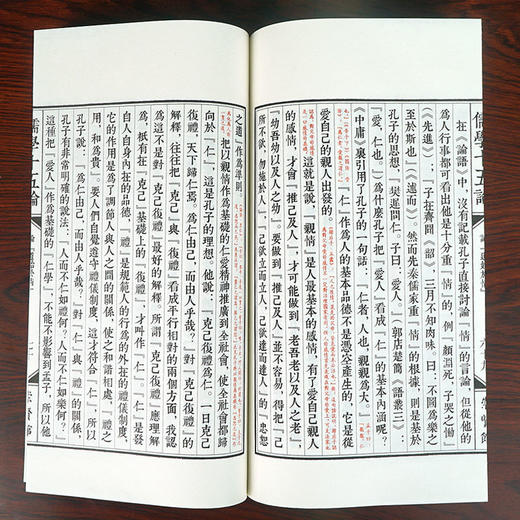 儒學十五論
在《論語》中，沒有記載孔子直接討論「情」的言論，但從他的
爲人行事都可看出他是十分重「情」的，例「顏淵死，子哭之慟」
《先進》；「子在齊聞《韶》，三月不知肉味。曰：不圖爲樂之
至於斯也」《述而》。然而先秦儒家重「情」的根據，則是基於
孔子的思想。「樊遲問仁。子曰：愛人」。郭店楚簡《語叢三》：
「愛，仁也」。爲什麼孔子把「愛人」看成「仁」的基本內涵呢？
《中庸》裏引用了孔子的一句話：「仁者，人也，親親爲大。」
作爲人的基本品德不是憑空產生的，它是從
愛自己的親人出發的。
這就是說，「親情」是人最基本的感情，有了愛自己親人
的感情，才會「推己及人」，才可能做到「老吾老以及人之老」，
「幼吾幼以及人之幼」。要做到「推己及人」並不容易，得把「己
所不欲，勿施於人」，「己欲立而立人，己欲達而達人」的「忠恕
之道」作爲準則。
把以親情作爲基礎的仁愛精神推廣到全社會，使全社會都歸
向於「仁」，這是孔子的理想。他說：「克己復禮爲仁。一日克己
復禮，天下歸仁焉。爲仁由己，而由人乎哉？」對「克己復禮」的
解釋，往往把「克己」與「復禮」看成平行相對的兩個方面，我認
爲這不是對「克己復禮」最好的解釋。所謂「克己復禮」，應理解
爲，祇有在「克己」基礎上的「復禮」，才叫作「仁」。「仁」是發
自人自身內在的品德，「禮」是規範人的行爲的外在的禮儀制度，
它的作用是爲了調節人與人之間的關係，使之和諧相處，「禮之
用，和爲貴」。要人們自覺遵守禮儀制度，這才符合「仁」，所以
孔子說：「爲仁由己，而由人乎哉？」對「仁」與「禮」的關係，
孔子有非常明確的說法：「人而不仁如禮何？人而不仁如樂何？」
這種把「愛人」作爲基礎的「仁學」，不能不影響到孟子，所以他
儒學十五論